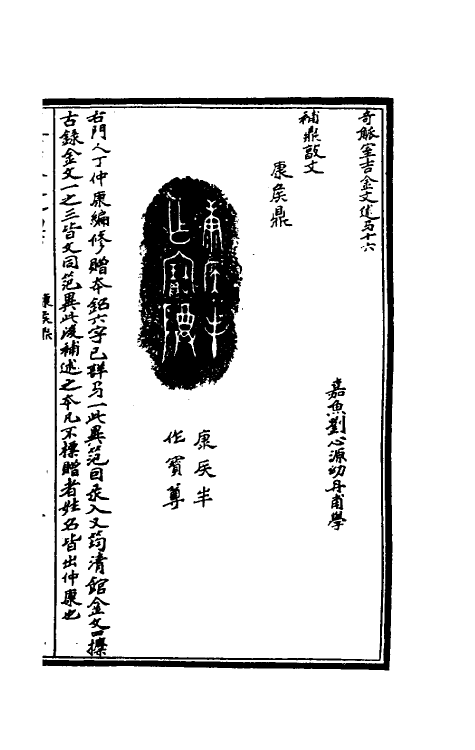 奇觚室吉金文述弓十六
嘉魚劉心源幼丹甫學
補鼎敦文
康矦鼎
康矦丰
作寶尊
康矦丰
作寶尊
右門人丁仲康編修贈本銘六字已詳弓一此異笵因彔入又筠清館金文四攈
古錄金文一之三皆文同笵異此後補述之本凡不標贈者姓名皆出仲康也
康矦鼎